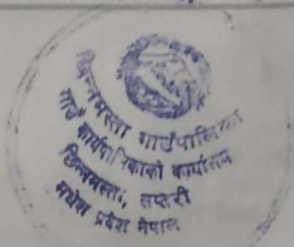 छिन्नमस्ता गाउँपालिका
गाउँ कार्यपालिकाको कार्यालय
छिन्नमस्ता, सप्तरी
मधेश प्रदेश नेपाल